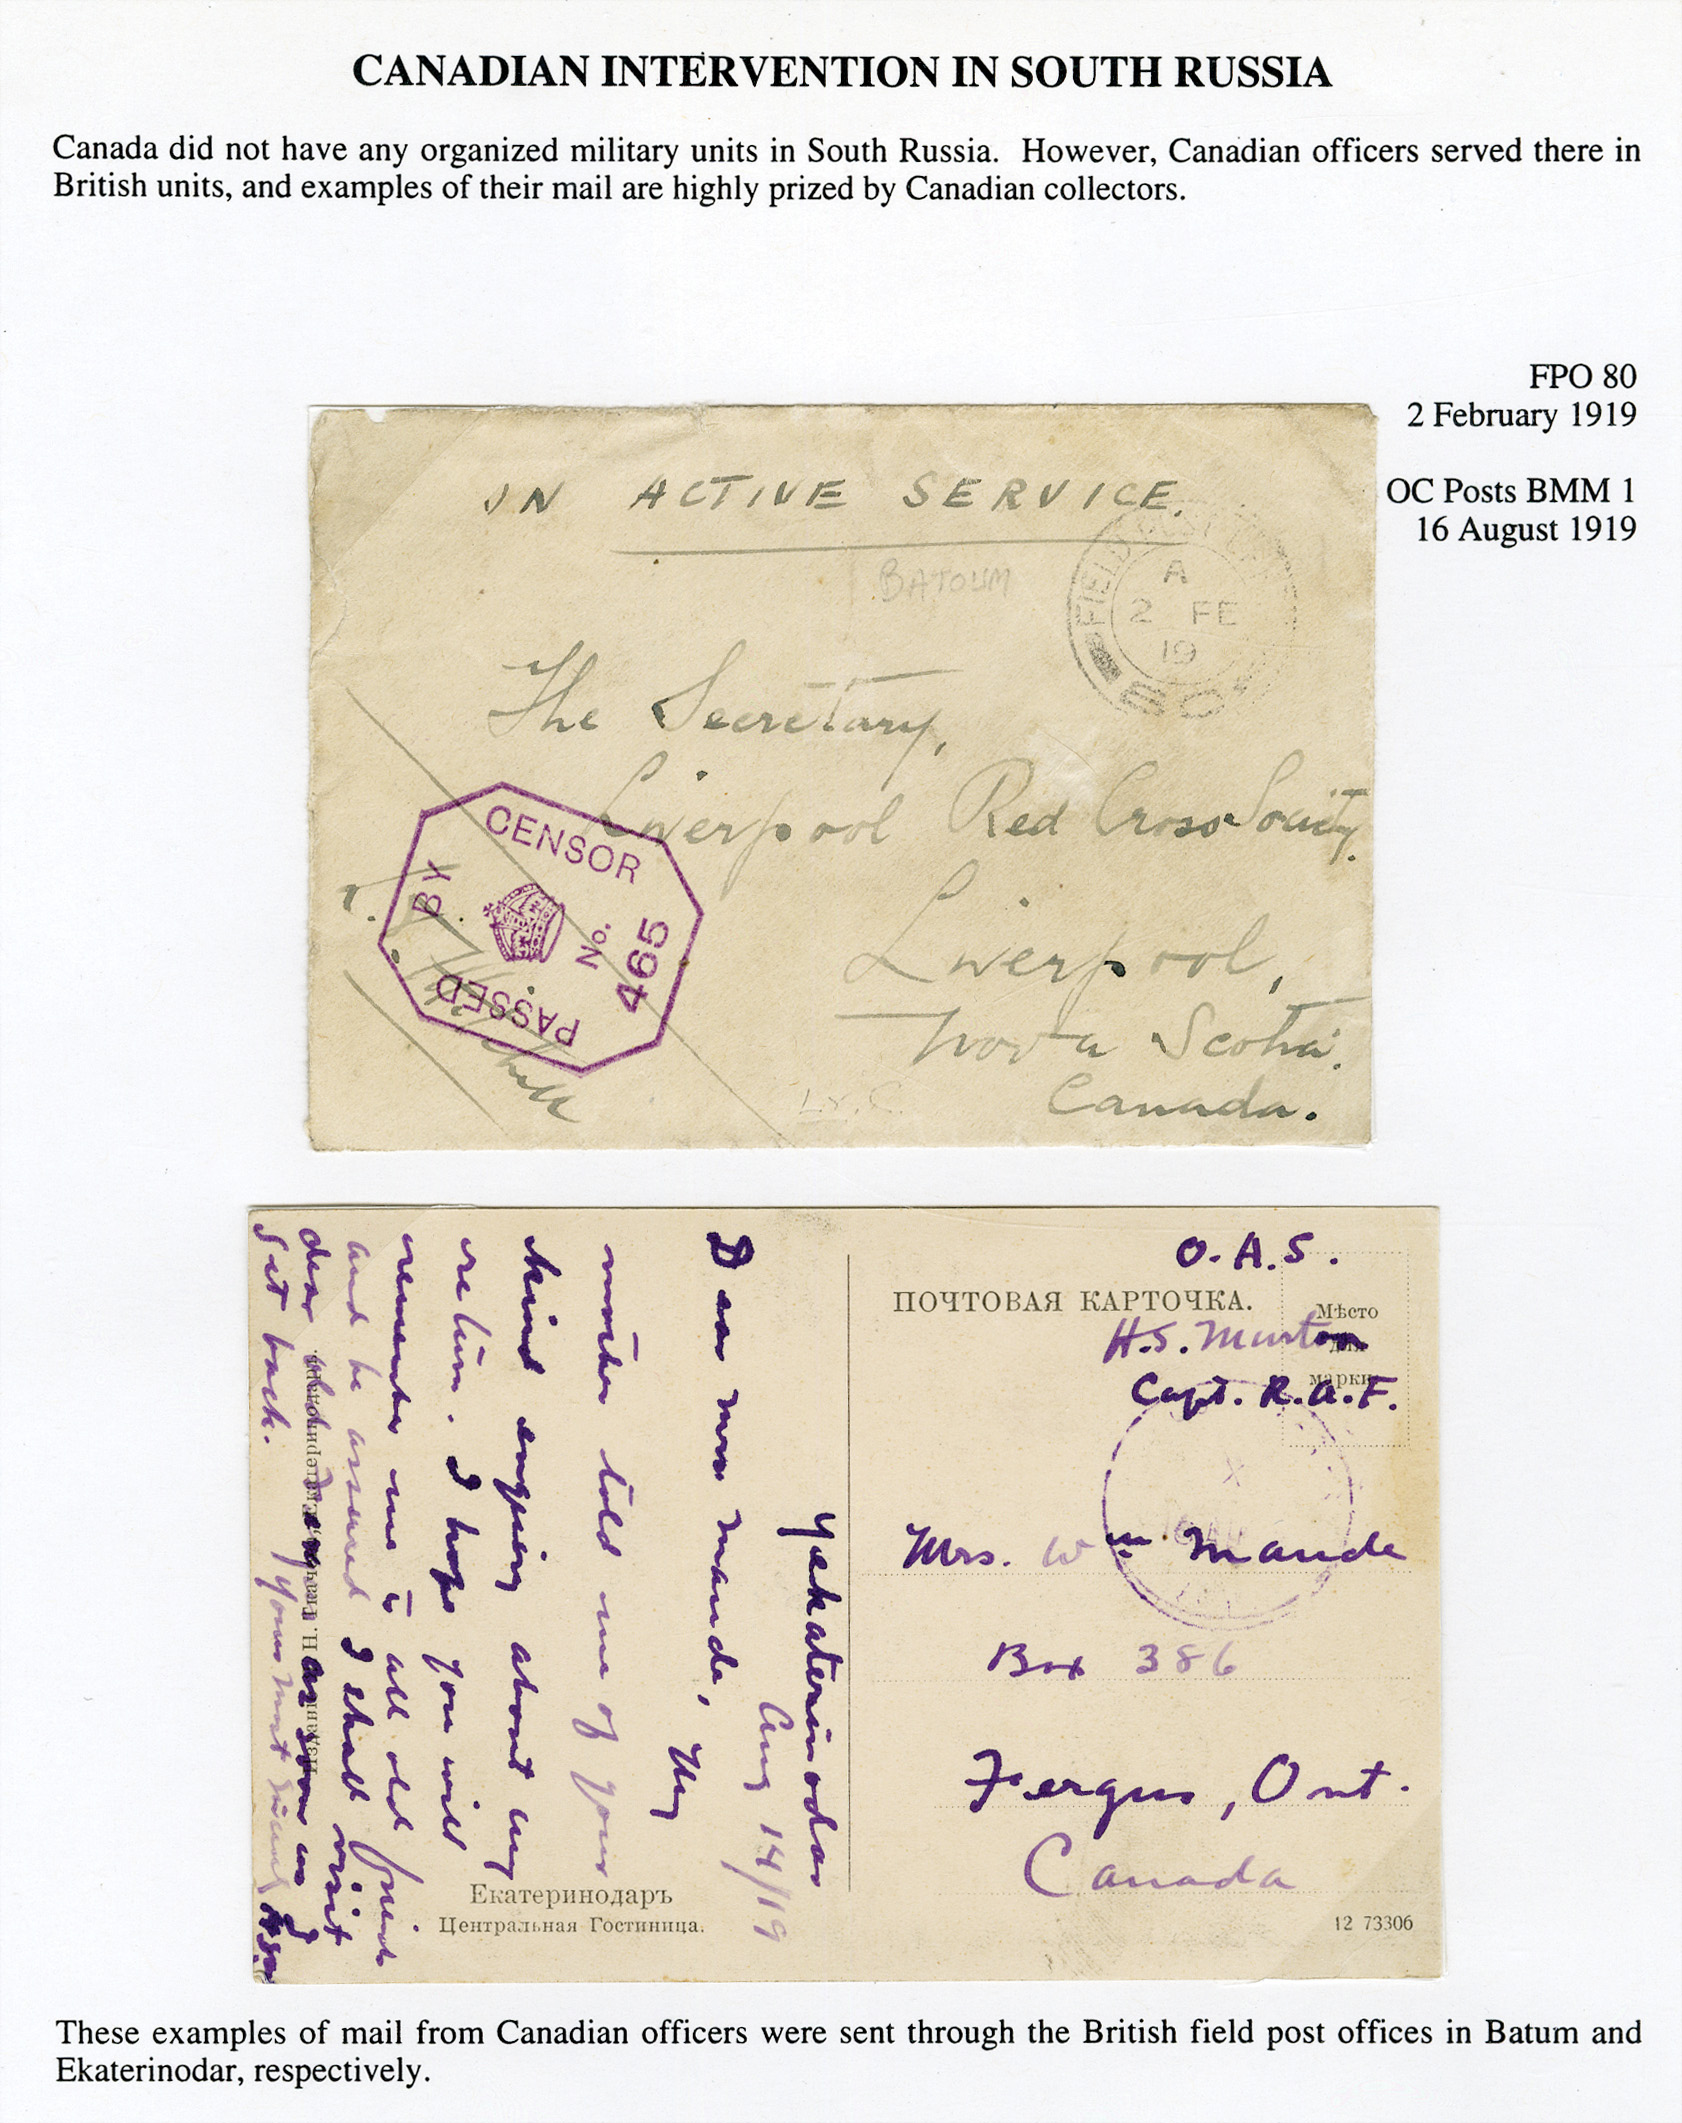 CANADIAN INTERVENTION IN SOUTH RUSSIA
Canada did not have any organized military units in South Russia. However, Canadian officers served there in
British units, and examples of their mail are highly prized by Canadian collectors.
FPO 80
2 February 1919
OC Posts BMM 1
16 August 1919
ON ACTIVE SERVICE.
BATOUM
FIELD POST
A
2 FE
19
80
The Secretary,
Liverpool Red Cross Society,
Liverpool,
Nova Scotia.
Canada.
PASSED BY CENSOR
No. 465
O.A.S.
ПОЧТОВАЯ КАРТОЧКА.
Мѣсто
для
марки
H.S.
Capt. R.A.F.
Mrs. Wm Maude
Box 386
Fergus, Ont.
Canada
Yekaterinodar
Aug 14/19
Dear Mrs Maude, My
mother told me of your
kind enquiry about my
return. I hope you will
remember me to all old friends
and be assured I shall visit
dear old Fergus as soon as I
get back.
Yours most
Екатеринодаръ
Центральная Гостиница.
12 73306
These examples of mail from Canadian officers were sent through the British field post offices in Batum and
Ekaterinodar, respectively.